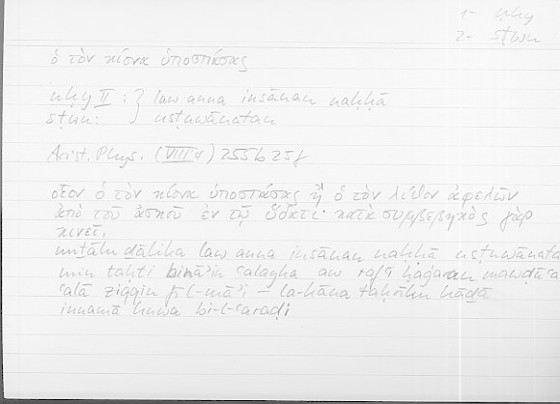 1- nḥy
2- sṭwn
ὁ τὸν κίονα ὑποσπάσας
nḥy II : } law anna insānan naḥḥā
sṭwn: } usṭuwānatan
Arist. Phys. (VIII 4) 255b25f
οἷον ὁ τὸν κίονα ὑποσπάσας ἢ ὁ τὸν λίθον ἀφελὼν
ἀπὸ τοῦ ἀσκοῦ ἐν τῷ ὕδατι· κατὰ συμβεβηκὸς γὰρ
κινεῖ.
miṯālu ḏālika law anna insānan naḥḥā usṭuwānata
min taḥti bināʾin ʿalayhā aw rafaʿa ḥaǧaran mawḍūʿa
ʿalā ziqqin fī l-māʾi – la-kāna taḥrīku hāḏā
innamā huwa bi-l-ʿaraḍi